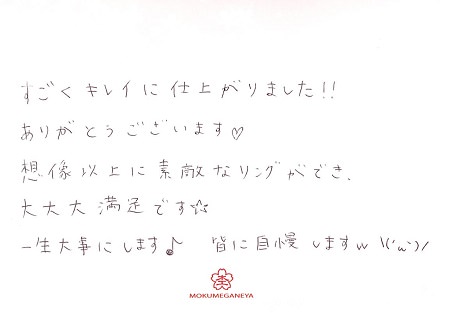 すごくキレイに仕上がりました!!
ありがとうございます♡
想像以上に素敵なリングができ、
大大大満足です☆
一生大事にします♪ 皆に自慢しますw \(^ω^)/
MOKUMEGANEYA